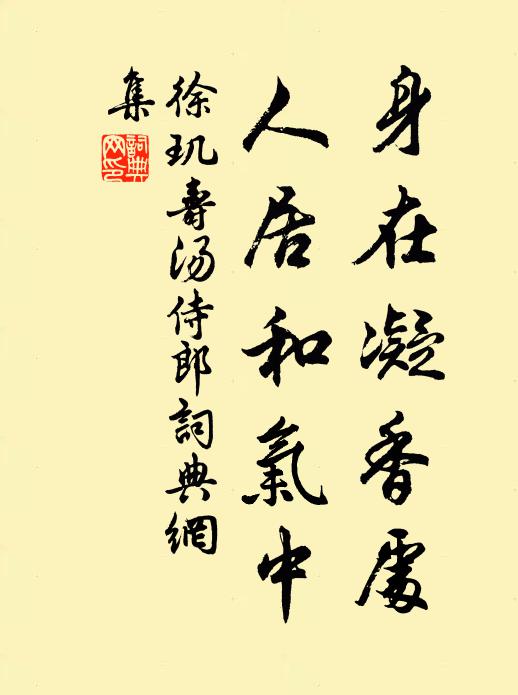 身在凝香處
人居和氣中
徐玑壽汤侍郎詞典網
集
詞典
网印